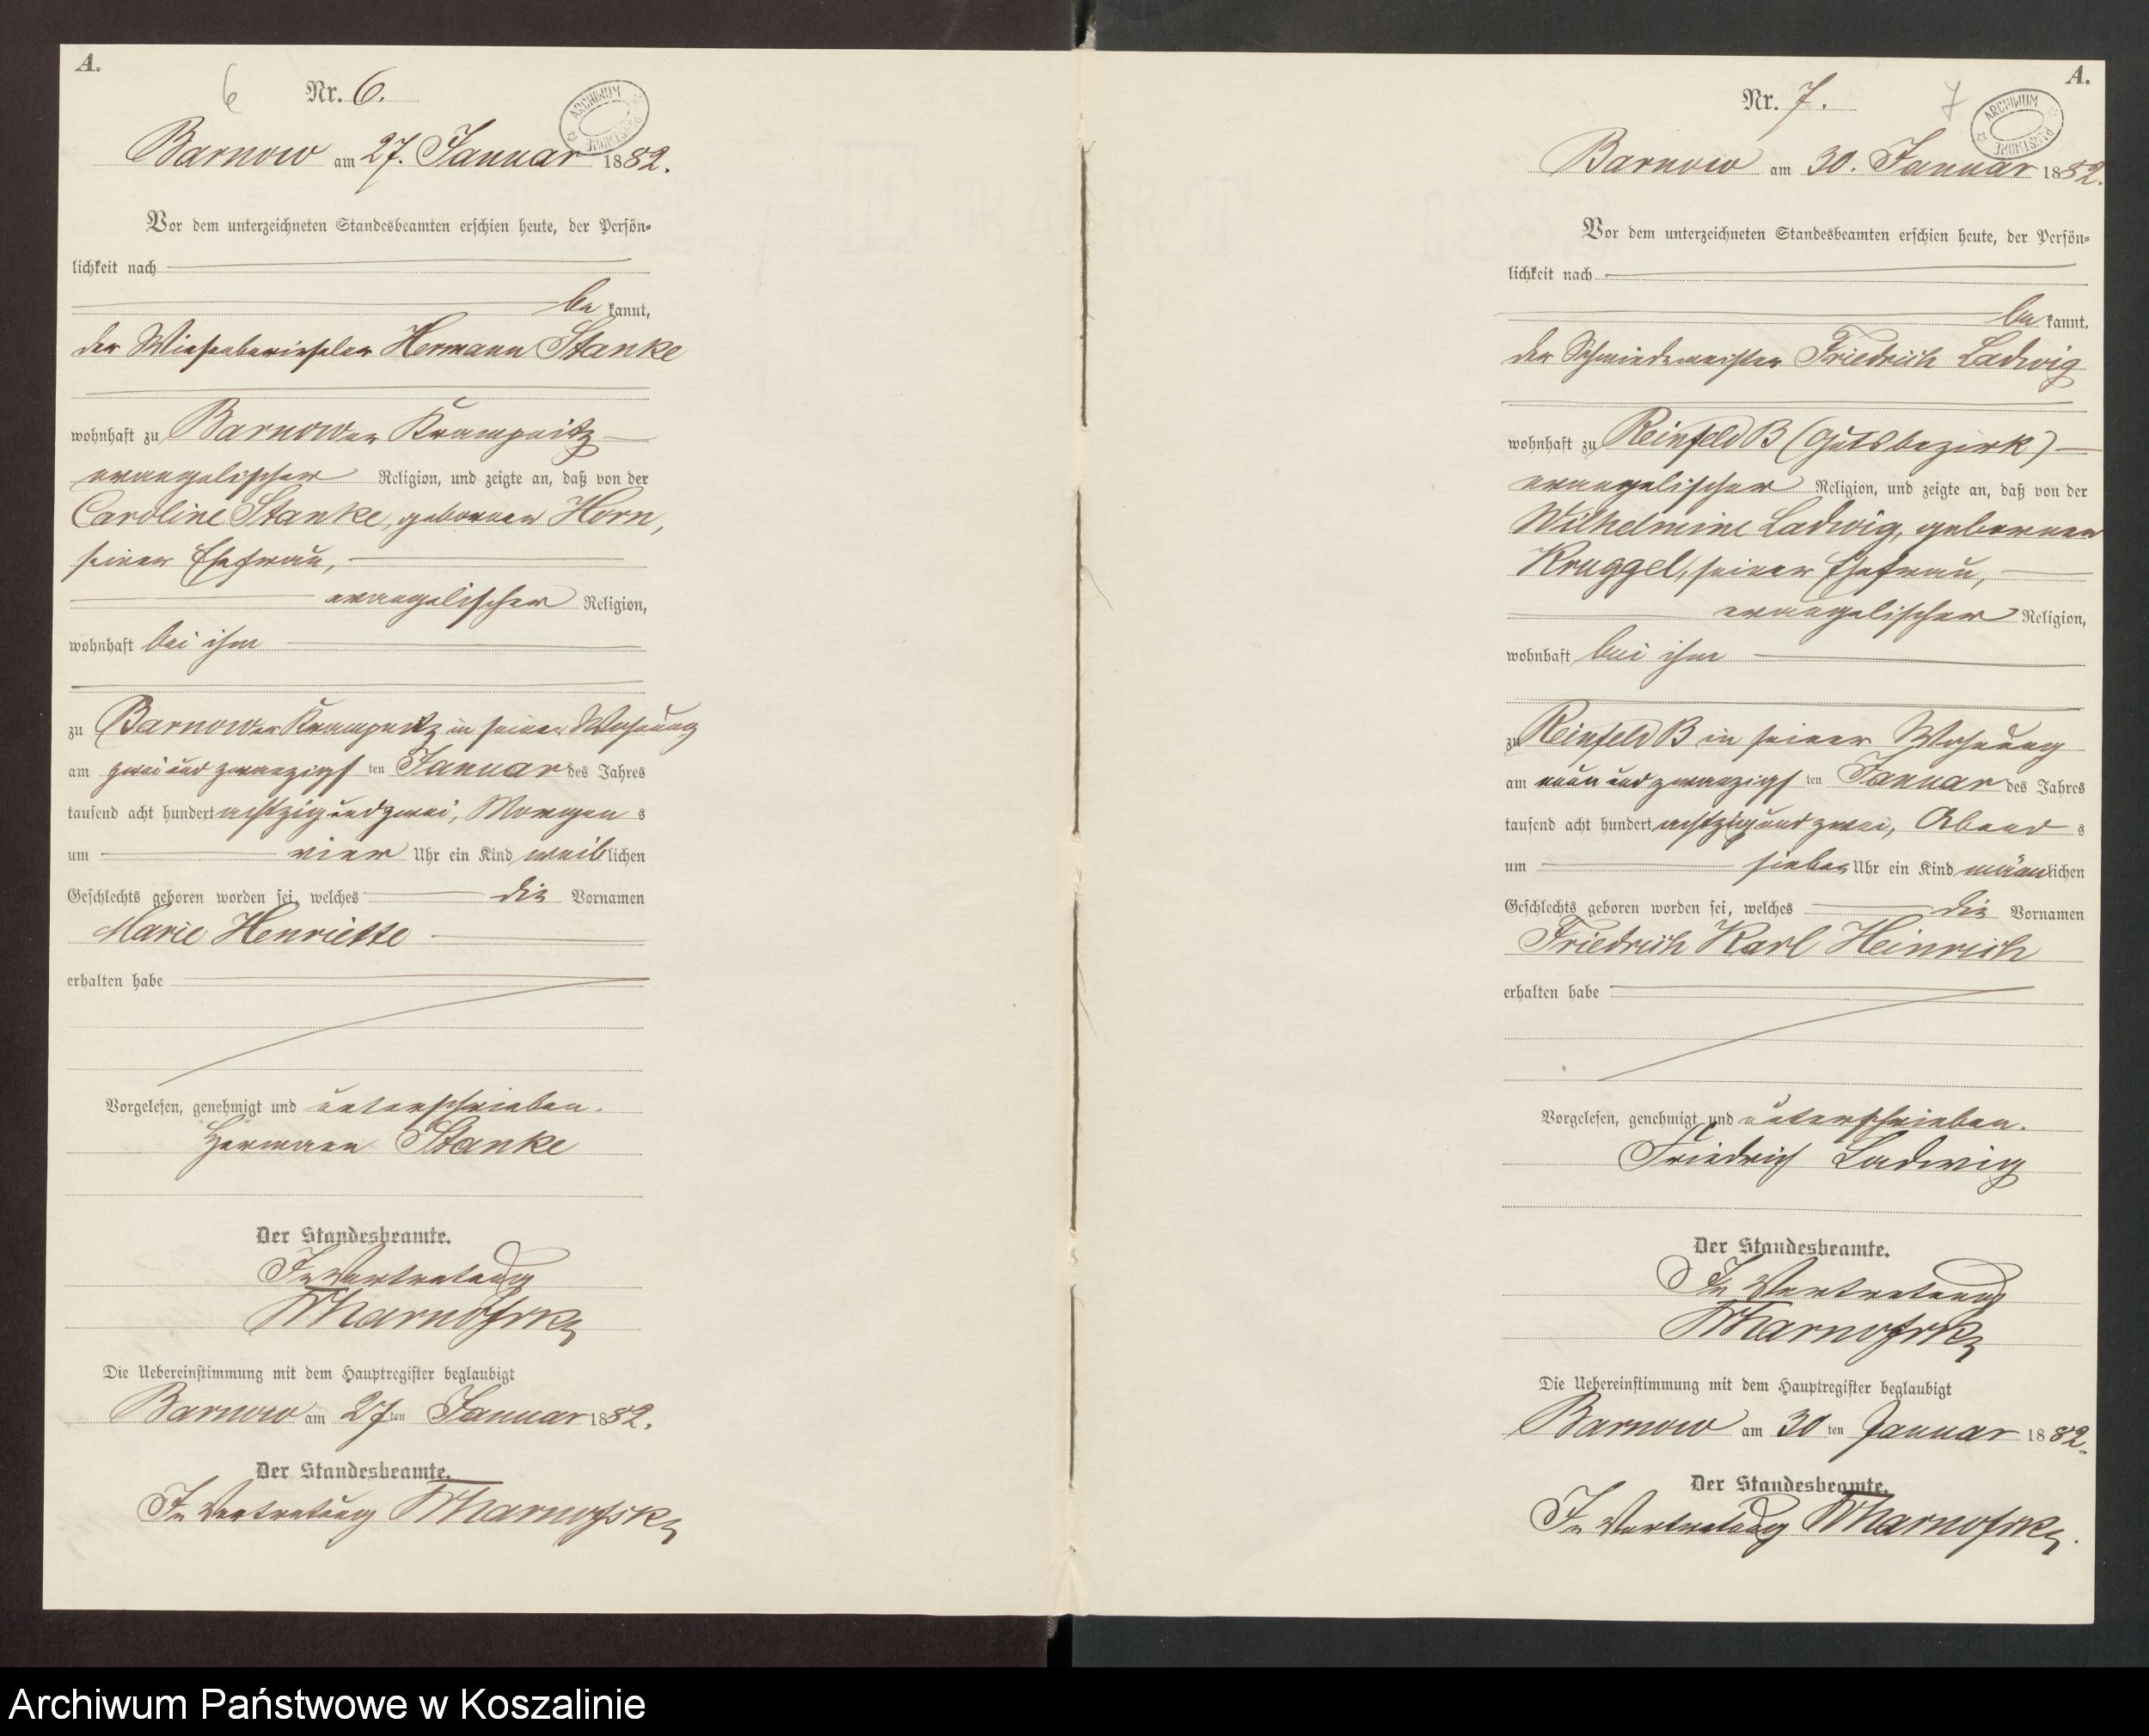 A.
6
Nr. 6.
ARCHIWUM PAŃSTWOWE
Barnow am 27. Januar 1882.
Vor dem unterzeichneten Standesbeamten erschien heute, der Persön-
lichkeit nach
be kannt,
der Wiesenberieseler Hermann Stanke
wohnhaft zu Barnower Krampnitz
evangelischer Religion, und zeigte an, daß von der
Caroline Stanke, geborenen Horn,
seiner Ehefrau,
evangelischer Religion,
wohnhaft bei ihm
zu Barnower Krampnitz in seiner Wohnung
am zwei und zwanzigs ten Januar des Jahres
tausend acht hundert achtzig und zwei, Morgen s
um vier Uhr ein Kind weib lichen
Geschlechts geboren worden sei, welches die Vornamen
Marie Henriette
erhalten habe
Vorgelesen, genehmigt und unterschrieben.
Hermann Stanke
Der Standesbeamte.
In Vertretung
Die Uebereinstimmung mit dem Hauptregister beglaubigt
Barnow am 27ten Januar 1882.
Der Standesbeamte.
In Vertretung
A.
7
Nr. 7.
ARCHIWUM PAŃSTWOWE
Barnow am 30. Januar 1882.
Vor dem unterzeichneten Standesbeamten erschien heute, der Persön-
lichkeit nach
be kannt,
der Schmiedemeister Friedrich Ladwig
wohnhaft zu Reinfeld B (Gutsbezirk)
evangelischer Religion, und zeigte an, daß von der
Wilhelmine Ladwig, geborenen
Kruggel, seiner Ehefrau,
evangelischer Religion,
wohnhaft bei ihm
zu Reinfeld B in seiner Wohnung
am neun und zwanzigs ten Januar des Jahres
tausend acht hundert achtzig und zwei, Abend s
um sieben Uhr ein Kind männlichen
Geschlechts geboren worden sei, welches die Vornamen
Friedrich Karl Heinrich
erhalten habe
Vorgelesen, genehmigt und unterschrieben.
Friedrich Ladwig
Der Standesbeamte.
In Vertretung
Die Uebereinstimmung mit dem Hauptregister beglaubigt
Barnow am 30 ten Januar 1882.
Der Standesbeamte.
In Vertretung
Archiwum Państwowe w Koszalinie